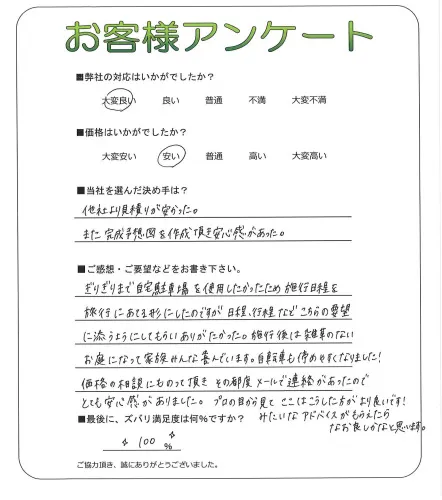 お客様アンケート
■弊社の対応はいかがでしたか？
大変良い 良い 普通 不満 大変不満
■価格はいかがでしたか？
大変安い 安い 普通 高い 大変高い
■当社を選んだ決め手は？
他社より見積りが安かった。
また完成予想図を作成頂き安心感があった。
■ご感想・ご要望などをお書き下さい。
ぎりぎりまで自宅駐車場を使用したかったため施行日程を
旅行にあてる形にしたのですが日程、行程などこちらの要望
に添うようにしてもらいありがたかった。施行後は雑草のない
お庭になって家族みんな喜んでいます。自転車も停めやすくなりました！
価格の相談にものって頂きその都度メールで連絡があったので
とても安心感がありました。プロの目から見てここはこうした方がより良いです！
みたいなアドバイスがもらえたら
なお良しかなと思います。
■最後に、ズバリ満足度は何％ですか？
100 %
ご協力頂き、誠にありがとうございました。